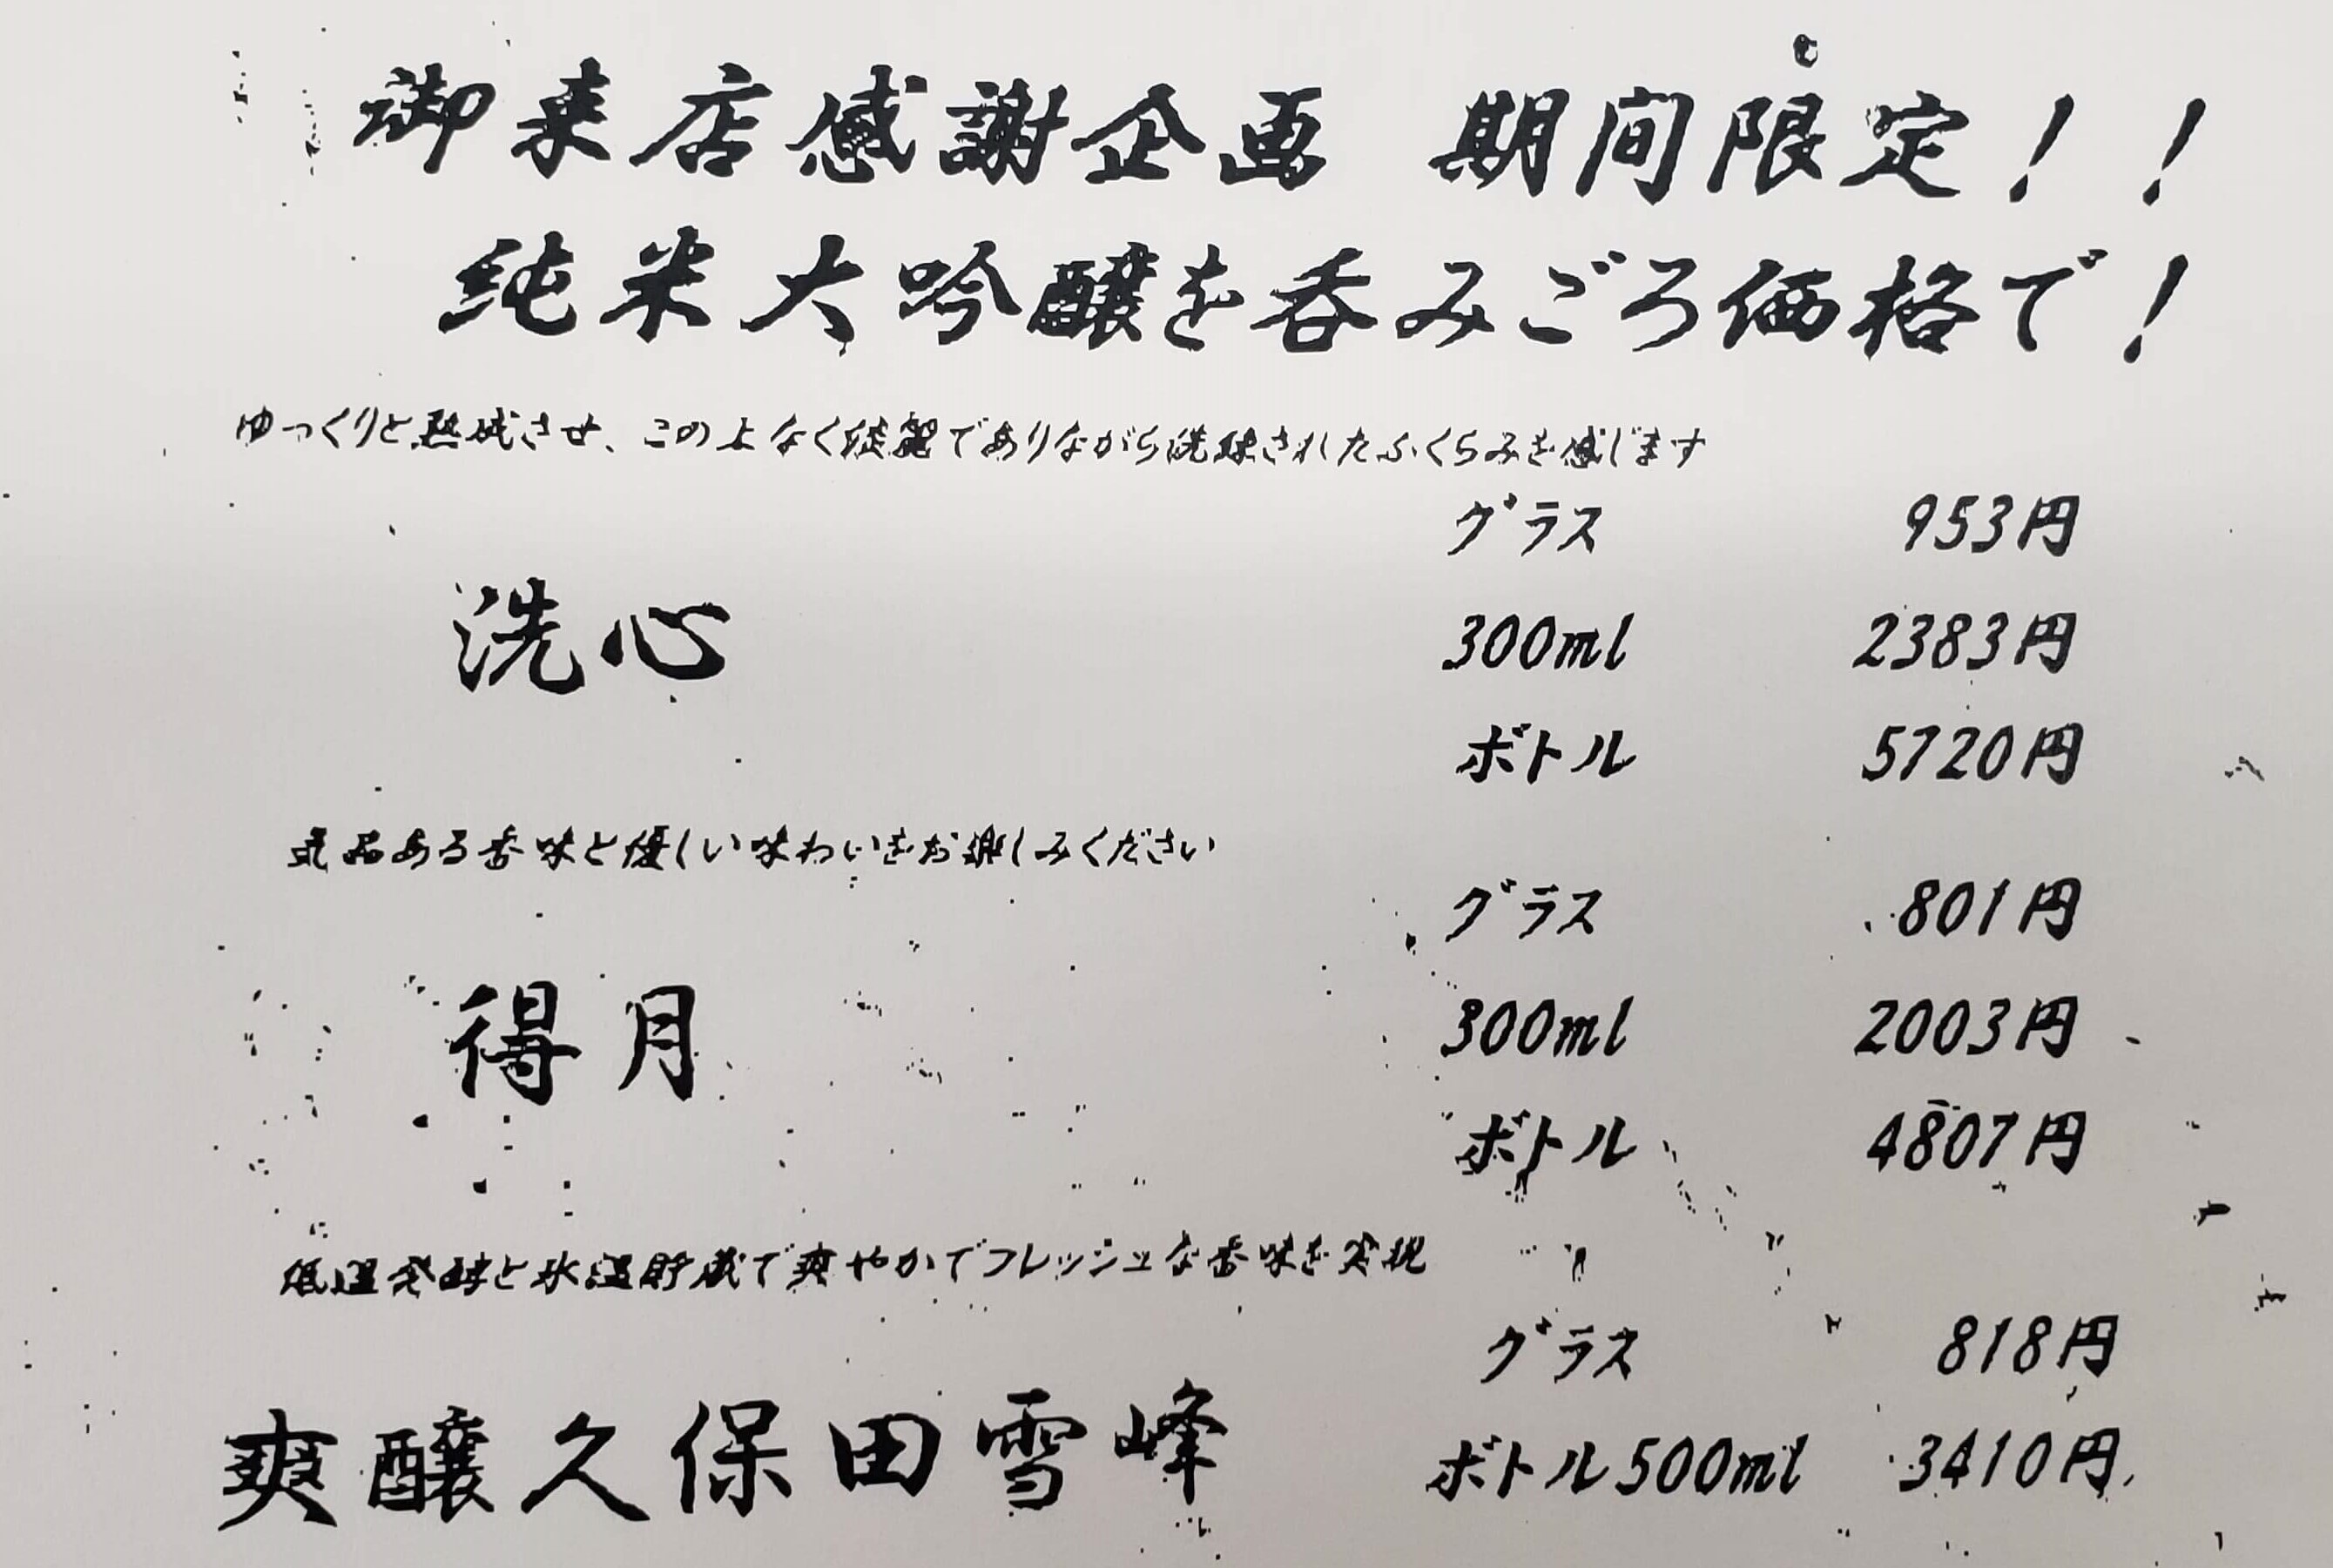 御来店感謝企画 期間限定!!
純米大吟醸を呑みごろ価格で!
ゆっくりと熟成させ、このよなく淡麗でありながら洗練されたふくらみを感じます
グラス 953円
洗心 300ml 2383円
ボトル 5720円
気品ある香味と優しい味わいをお楽しみください
グラス 801円
得月 300ml 2003円
ボトル 4807円
低温発酵と氷温貯蔵で爽やかでフレッシュな香味を実現
グラス 818円
爽醸久保田雪峰 ボトル500ml 3410円